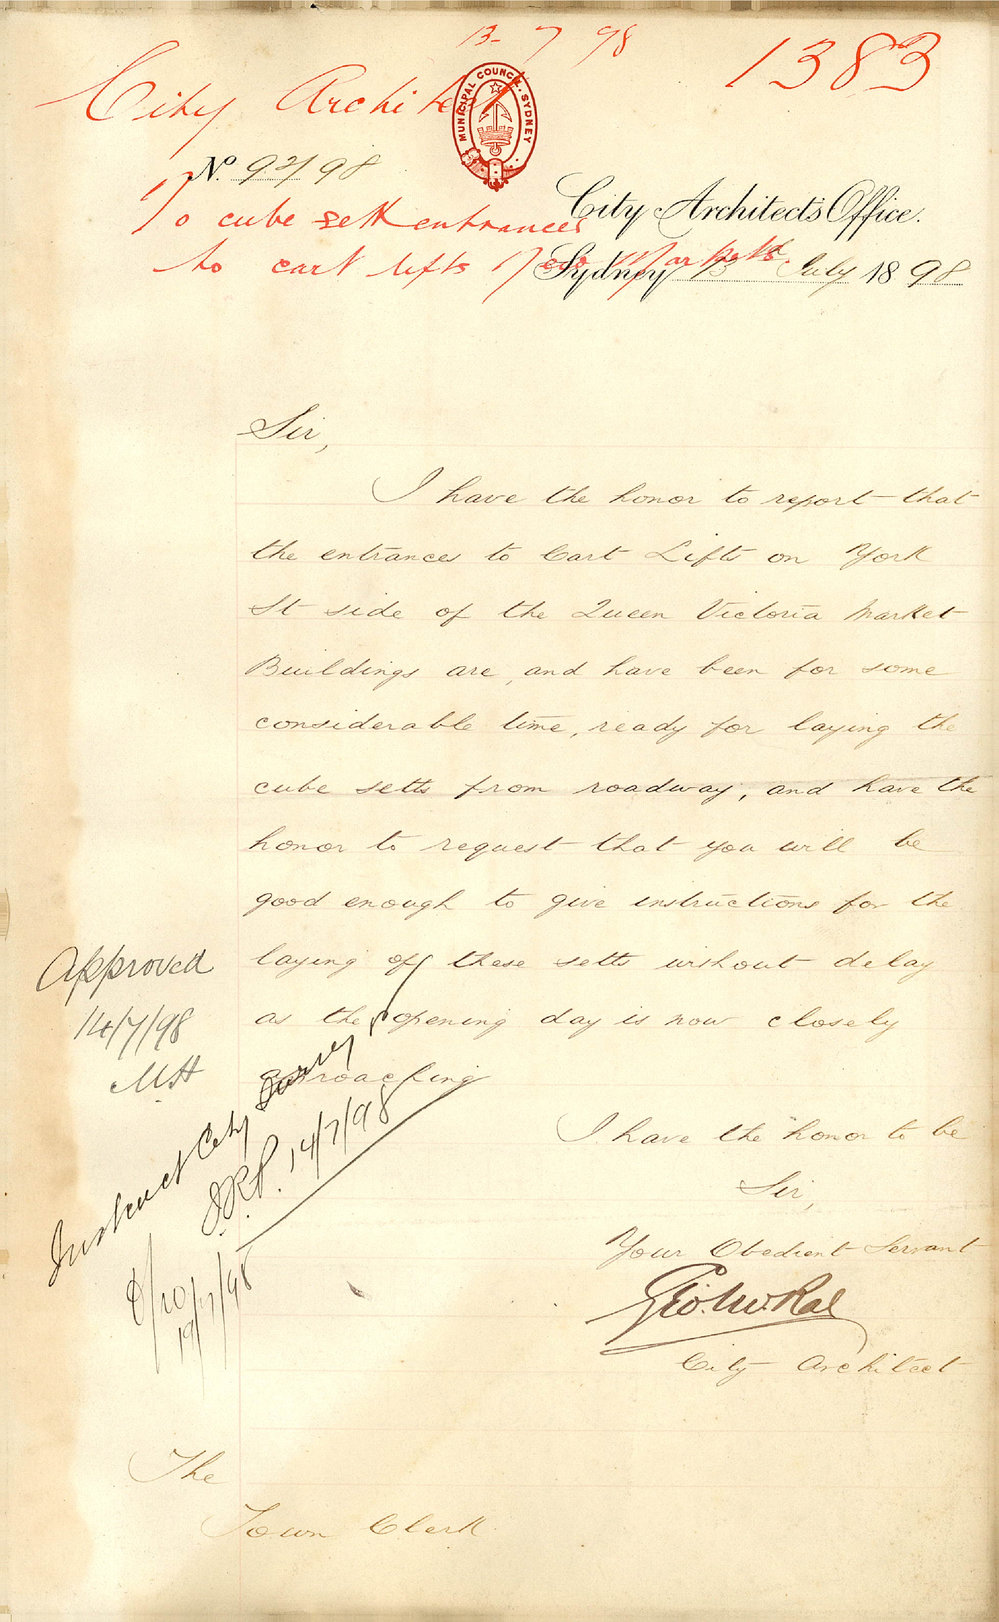 13-7 98
1383
City Architect
MUNICIPAL COUNCIL. SYDNEY.
No. 92/98
City Architect's Office.
To cube sett entrances
to cart lifts New Markets.
Sydney 13 July 1898
Sir,
I have the honor to report that
the entrances to Cart Lifts on York
St side of the Queen Victoria Market
Buildings are, and have been for some
considerable time, ready for laying the
cube setts from roadway, and have the
honor to request that you will be
good enough to give instructions for the
laying of these setts without delay
as the opening day is now closely
approaching
Approved
14/7/98
M.H
Instruct City Surveyor
14/7/98
19/7/98
I have the honor to be
Sir,
Your Obedient Servant
Geo. McRae
City Architect
The
Town Clerk